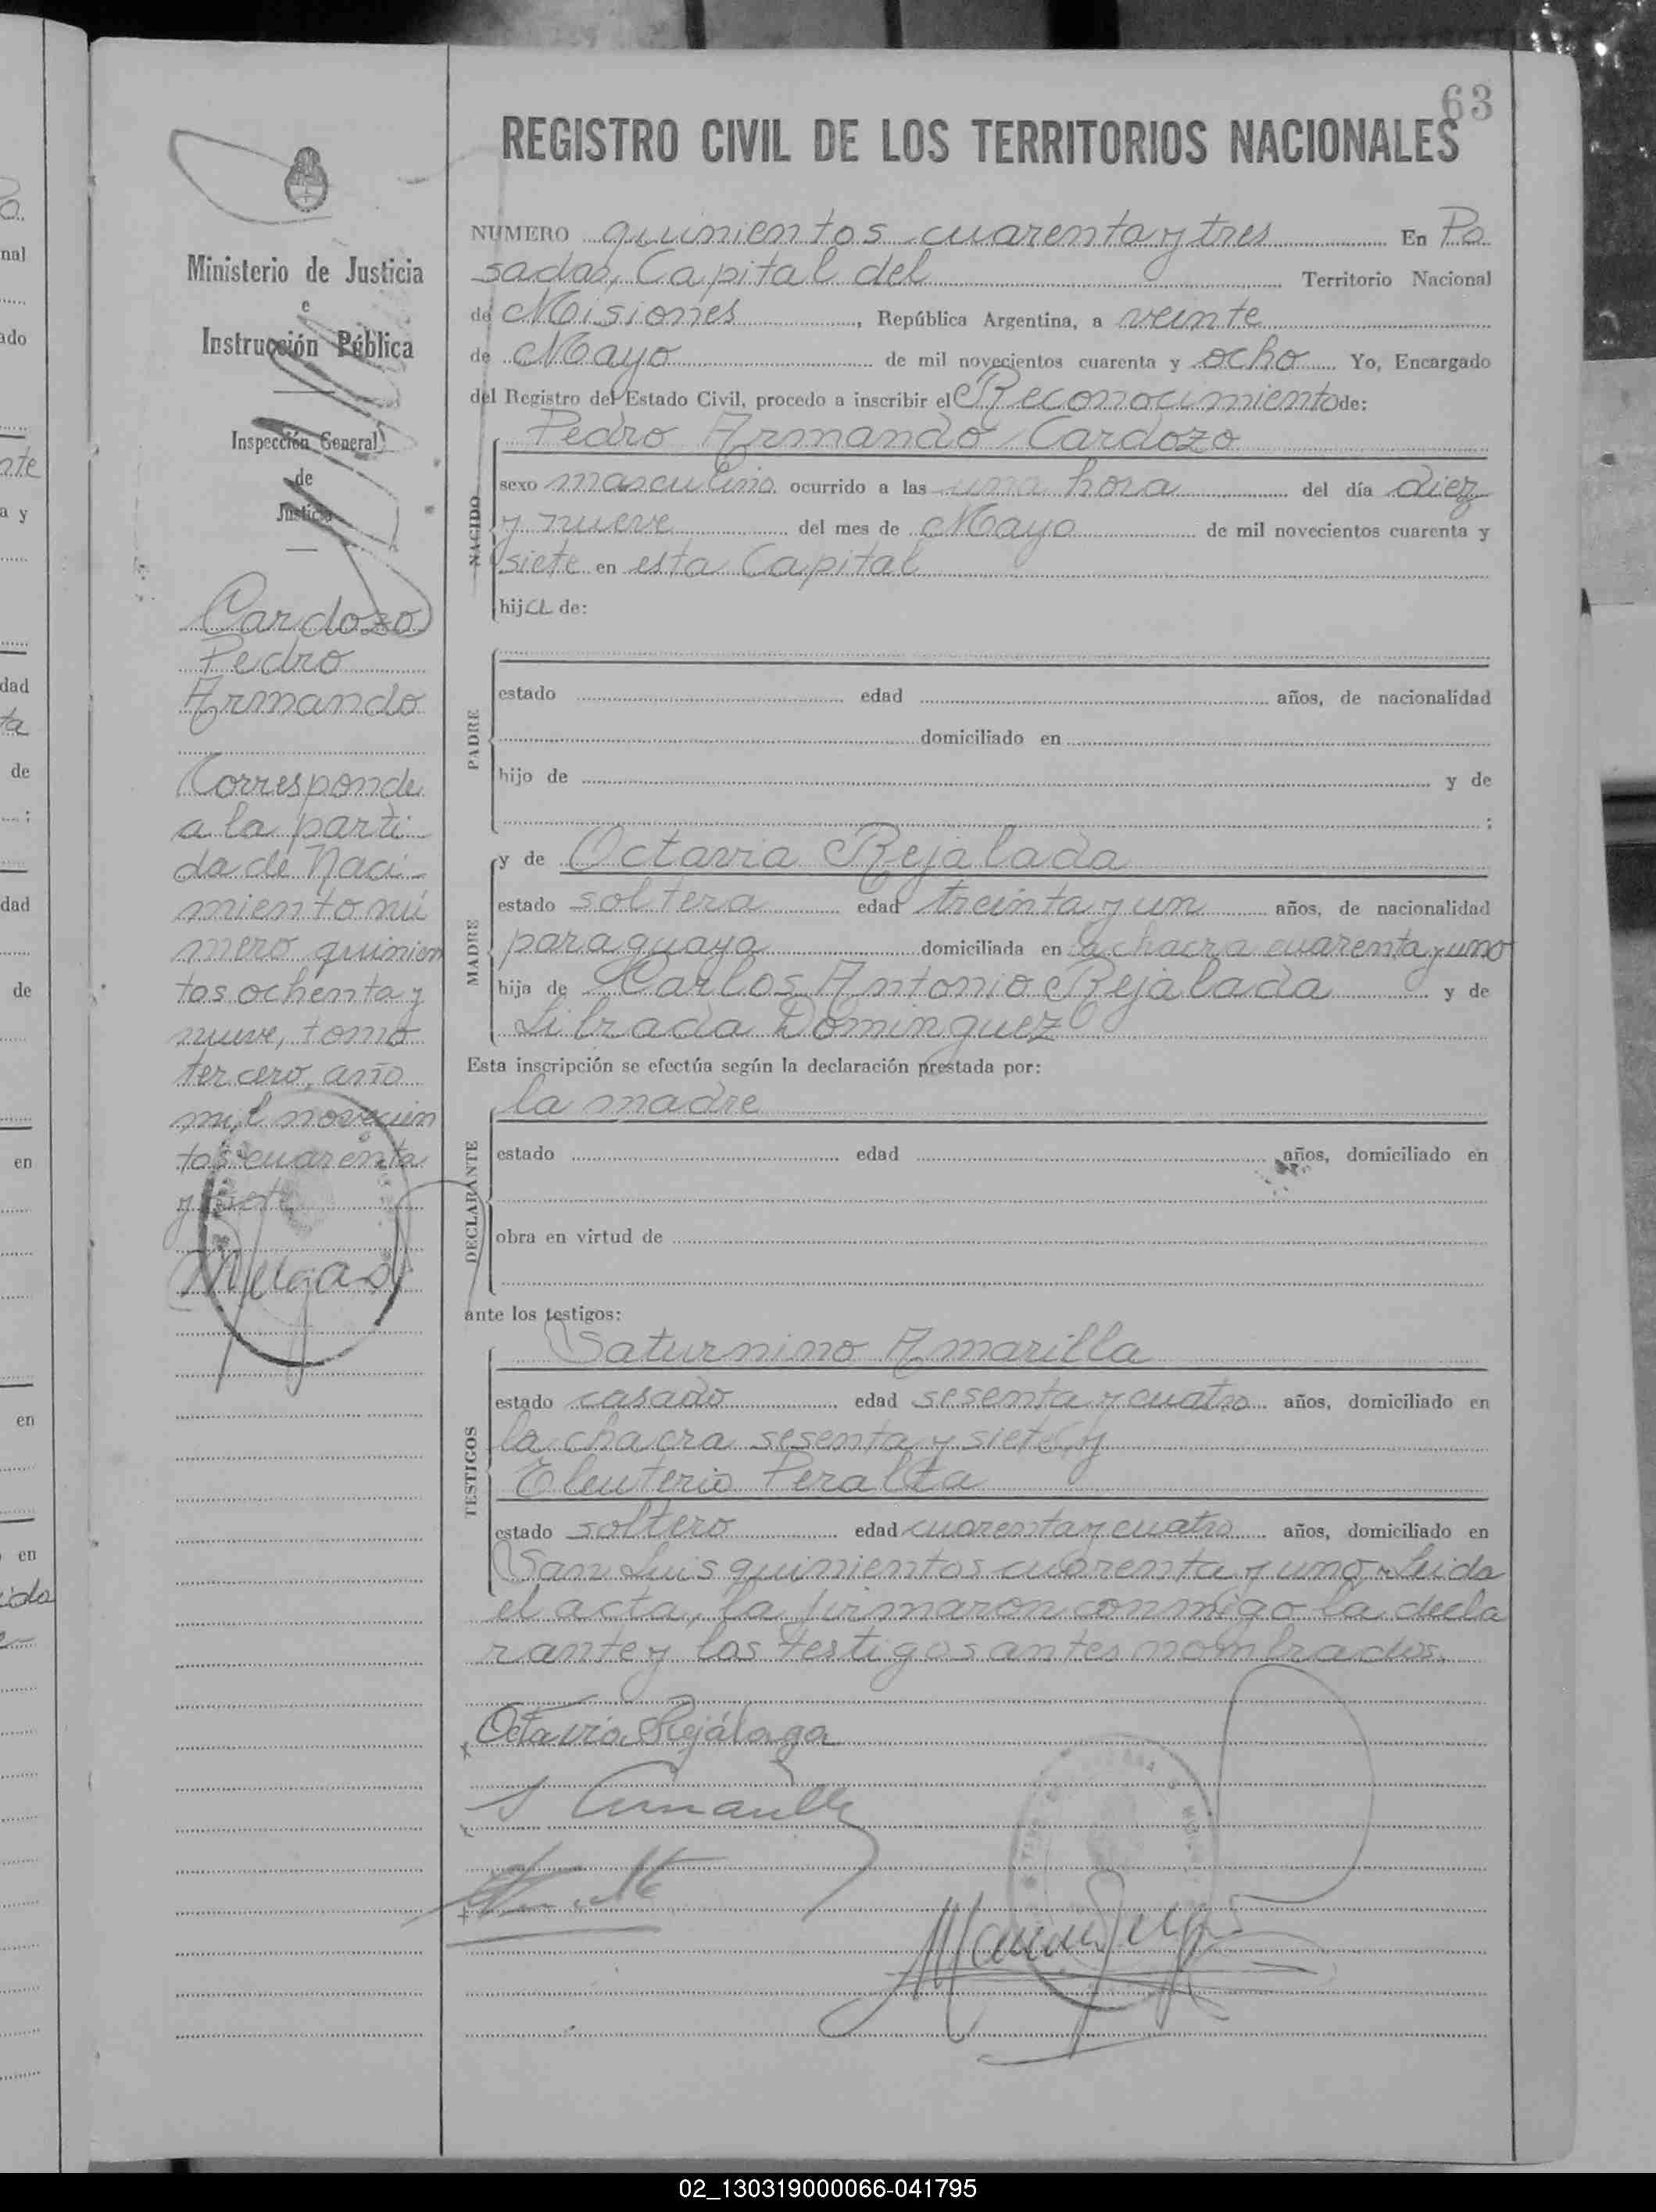 63
REGISTRO CIVIL DE LOS TERRITORIOS NACIONALES
Ministerio de Justicia
e
Instrucción Pública
Inspección General
de
Justicia
Cardozo
Pedro
Armando
Corresponde
a la parti-
da de Naci-
miento nú
mero quinien
tos ochenta y
nueve, tomo
tercero, año
mil novecien
tos cuarenta
y siete
NUMERO quinientos cuarenta y tres En Po
sadas, Capital del Territorio Nacional
de Misiones, República Argentina, a veinte
de Mayo de mil novecientos cuarenta y ocho Yo, Encargado
del Registro del Estado Civil, procedo a inscribir el Reconocimiento de:
NACIDO
Pedro Armando Cardozo
sexo masculino ocurrido a las una hora del día diez
y nueve del mes de Mayo de mil novecientos cuarenta y
siete en esta Capital
hija de:
PADRE
estado edad años, de nacionalidad
domiciliado en
hijo de y de
;
MADRE
y de Octavia Rejalada
estado soltera edad treinta y un años, de nacionalidad
paraguaya domiciliada en la chacra cuarenta y uno
hija de Carlos Antonio Rejalada y de
Librada Dominguez
Esta inscripción se efectúa según la declaración prestada por:
DECLARANTE
la madre
estado edad años, domiciliado en
obra en virtud de
ante los testigos:
TESTIGOS
Saturnino Amarilla
estado casado edad sesenta y cuatro años, domiciliado en
la chacra sesenta y siete y
Eleuterio Peralta
estado soltero edad cuarenta y cuatro años, domiciliado en
San Luis quinientos cuarenta y uno. Leida
el acta, la firmaron conmigo la decla
rante y los testigos antes nombrados.
Octavia Rejálaga
S Amarilla
02_130319000066-041795